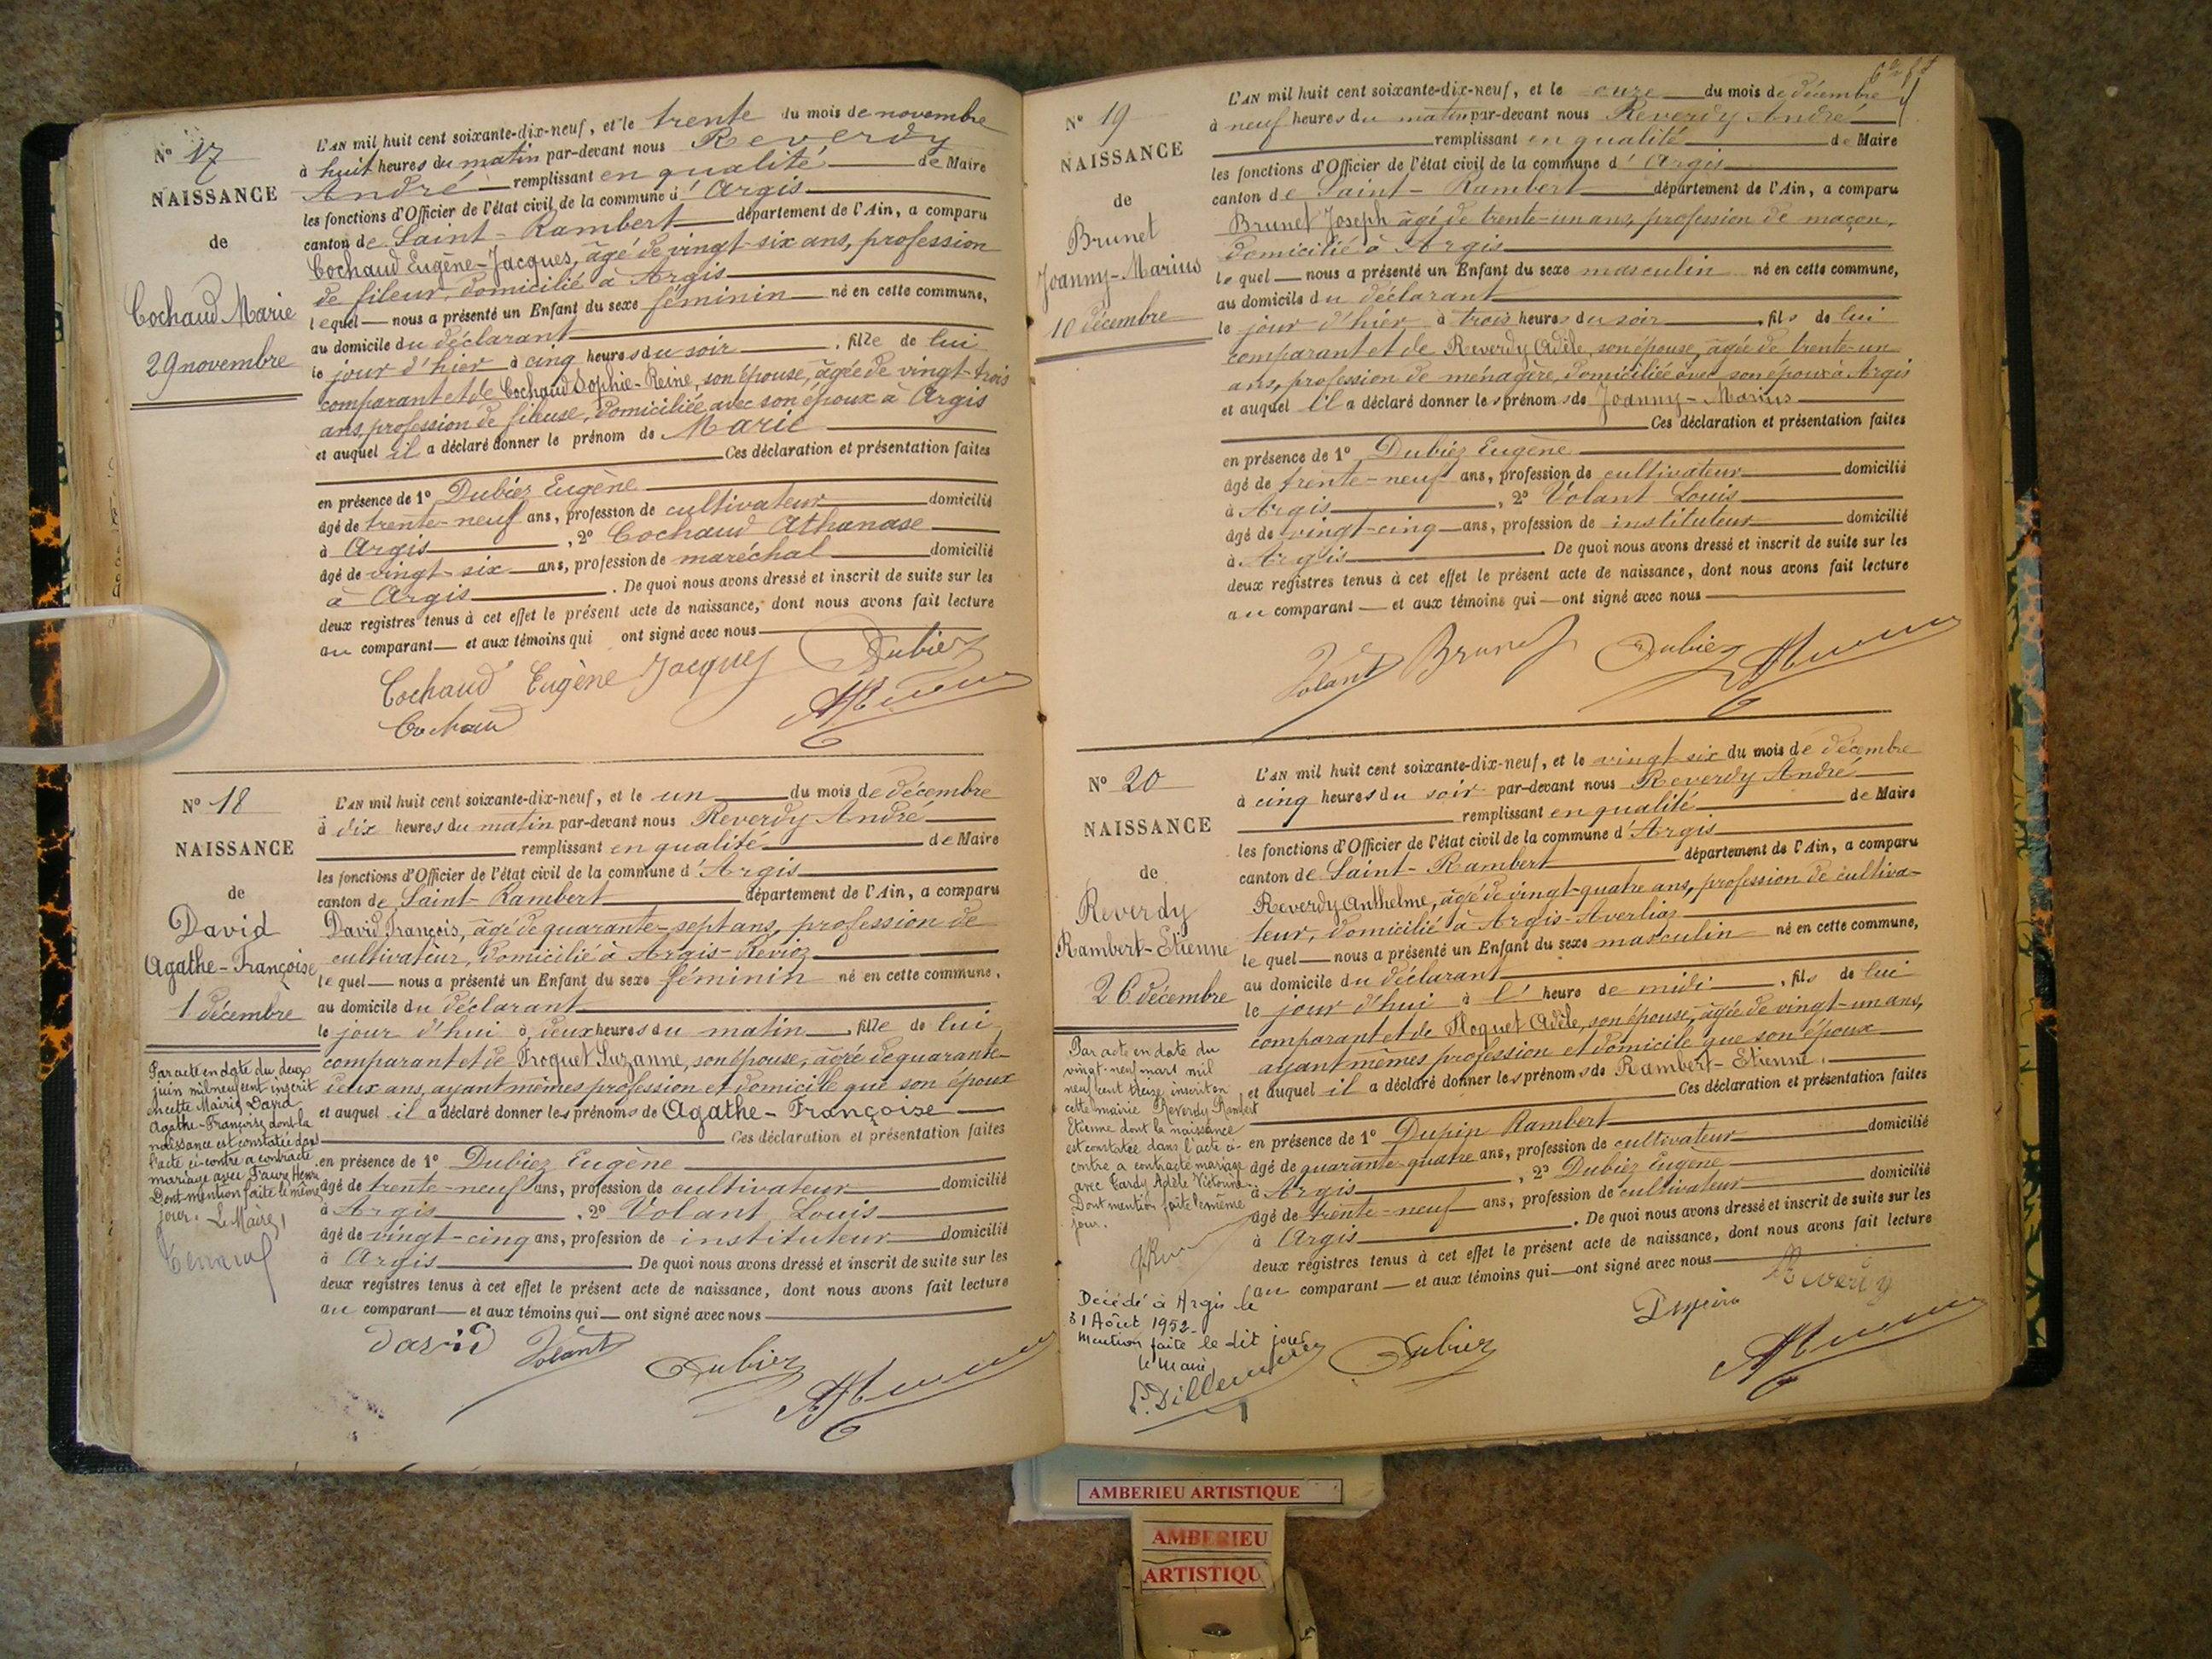 N° 17
NAISSANCE
de
Cochaud Marie
29 novembre
L'AN mil huit cent soixante-dix-neuf, et le trente du mois de novembre
à huit heures du matin par-devant nous Reverdy
André remplissant en qualité de Maire
les fonctions d'Officier de l'état civil de la commune d'Argis
canton de Saint-Rambert département de l'Ain, a comparu
Cochaud Eugène-Jacques, âgé de vingt-six ans, profession
de fileur, domicilié à Argis
lequel nous a présenté un Enfant du sexe féminin né en cette commune,
au domicile du déclarant
le jour d'hier à cinq heures du soir, fille de lui
comparant et de Cochaud Sophie-Reine, son épouse, âgée de vingt-trois
ans, profession de fileuse, domiciliée avec son époux à Argis
et auquel il a déclaré donner le prénom de Marie
Ces déclaration et présentation faites
en présence de 1° Dubiez Eugène
âgé de trente-neuf ans, profession de cultivateur domicilié
à Argis, 2° Cochaud Athanase
âgé de vingt-six ans, profession de maréchal domicilié
à Argis. De quoi nous avons dressé et inscrit de suite sur les
deux registres tenus à cet effet le présent acte de naissance, dont nous avons fait lecture
au comparant et aux témoins qui ont signé avec nous
Cochaud Eugène Jacques Dubiez
Cochaud
N° 18
NAISSANCE
de
David
Agathe-Françoise
1 décembre
Par acte en date du deux
juin mil neuf cent inscrit
en cette Mairie David
Agathe-Françoise dont la
naissance est constatée dans
l'acte ci-contre a contracté
mariage avec Faure Henri
Dont mention faite le même
jour. Le Maire,
L'AN mil huit cent soixante-dix-neuf, et le un du mois de décembre
à dix heures du matin par-devant nous Reverdy André
remplissant en qualité de Maire
les fonctions d'Officier de l'état civil de la commune d'Argis
canton de Saint-Rambert département de l'Ain, a comparu
David François, âgé de quarante-sept ans, profession de
cultivateur, domicilié à Argis-Revioz
lequel nous a présenté un Enfant du sexe féminin né en cette commune,
au domicile du déclarant
le jour d'hui à deux heures du matin, fille de lui
comparant et de Froquet Suzanne, son épouse, âgée de quarante-
deux ans, ayant mêmes profession et domicile que son époux
et auquel il a déclaré donner les prénoms de Agathe-Françoise
Ces déclaration et présentation faites
en présence de 1° Dubiez Eugène
âgé de trente-neuf ans, profession de cultivateur domicilié
à Argis, 2° Volant Louis
âgé de vingt-cinq ans, profession de instituteur domicilié
à Argis De quoi nous avons dressé et inscrit de suite sur les
deux registres tenus à cet effet le présent acte de naissance, dont nous avons fait lecture
au comparant et aux témoins qui ont signé avec nous
David Volant Dubiez
N° 19
NAISSANCE
de
Brunet
Joanny-Marius
10 décembre
L'AN mil huit cent soixante-dix-neuf, et le onze du mois de décembre
à neuf heures du matin par-devant nous Reverdy André
remplissant en qualité de Maire
les fonctions d'Officier de l'état civil de la commune d'Argis
canton de Saint-Rambert département de l'Ain, a comparu
Brunet Joseph âgé de trente-un ans, profession de maçon,
domicilié à Argis
lequel nous a présenté un Enfant du sexe masculin né en cette commune,
au domicile du déclarant
le jour d'hier à trois heures du soir, fils de lui
comparant et de Reverdy Adèle, son épouse, âgée de trente-un
ans, profession de ménagère, domiciliée avec son époux à Argis
et auquel il a déclaré donner les prénoms de Joanny-Marius
Ces déclaration et présentation faites
en présence de 1° Dubiez Eugène
âgé de trente-neuf ans, profession de cultivateur domicilié
à Argis, 2° Volant Louis
âgé de vingt-cinq ans, profession de instituteur domicilié
à Argis. De quoi nous avons dressé et inscrit de suite sur les
deux registres tenus à cet effet le présent acte de naissance, dont nous avons fait lecture
au comparant et aux témoins qui ont signé avec nous
Volant Brunet Dubiez
N° 20
NAISSANCE
de
Reverdy
Rambert-Etienne
26 décembre
Par acte en date du
vingt-neuf mars mil
neuf cent treize inscrit en
cette mairie Reverdy Rambert
Etienne dont la naissance
est constatée dans l'acte ci-
contre a contracté mariage
avec Cardy Adèle Victorine.
Dont mention faite le même
jour.
Décédé à Argis le
31 Août 1952
Mention faite le dit jour
le Maire
L'AN mil huit cent soixante-dix-neuf, et le vingt-six du mois de décembre
à cinq heures du soir par-devant nous Reverdy André
remplissant en qualité de Maire
les fonctions d'Officier de l'état civil de la commune d'Argis
canton de Saint-Rambert département de l'Ain, a comparu
Reverdy Anthelme, âgé de vingt-quatre ans, profession de cultiva-
teur, domicilié à Argis-Averliaz
lequel nous a présenté un Enfant du sexe masculin né en cette commune,
au domicile du déclarant
le jour d'hui à l'heure de midi, fils de lui
comparant et de Floquet Adèle, son épouse, âgée de vingt-un ans,
ayant mêmes profession et domicile que son époux
et auquel il a déclaré donner les prénoms de Rambert-Etienne.
Ces déclaration et présentation faites
en présence de 1° Dupin Rambert
âgé de quarante-quatre ans, profession de cultivateur domicilié
à Argis, 2° Dubiez Eugène
âgé de trente-neuf ans, profession de cultivateur domicilié
à Argis. De quoi nous avons dressé et inscrit de suite sur les
deux registres tenus à cet effet le présent acte de naissance, dont nous avons fait lecture
au comparant et aux témoins qui ont signé avec nous
Reverdy
Dubiez
AMBERIEU ARTISTIQUE
AMBERIEU
ARTISTIQU